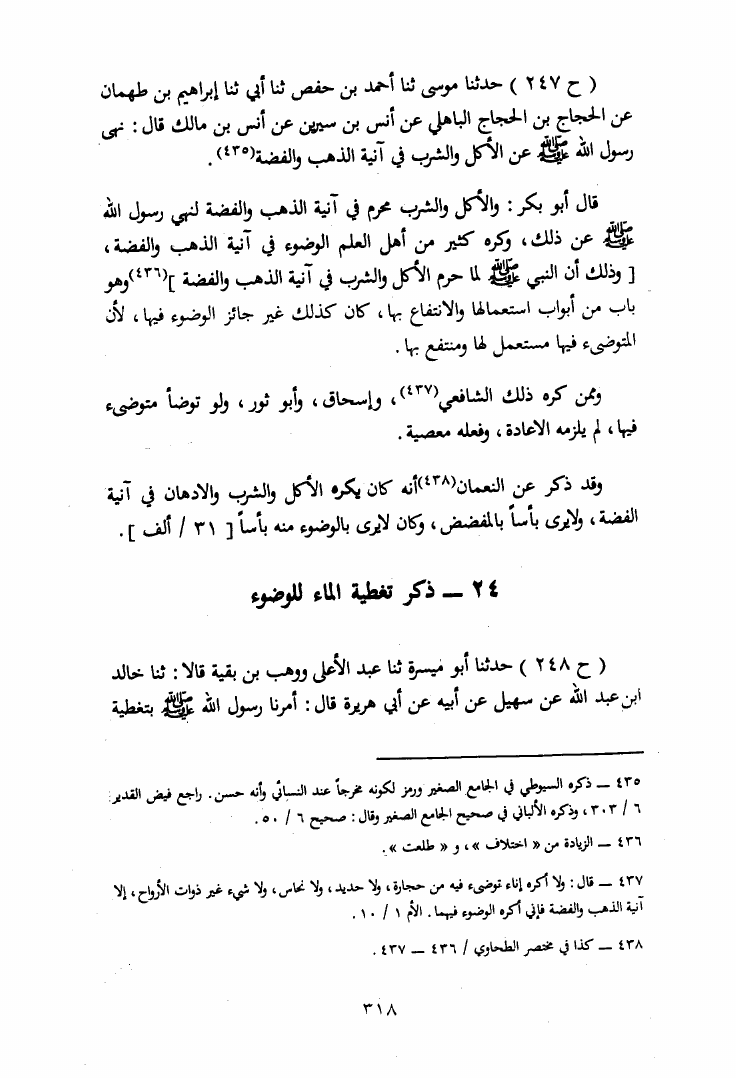 ( ح ٢٤٧ ) حدثنا موسى ثنا أحمد بن حفص ثنا أبي ثنا إبراهيم بن طهمان
عن الحجاج بن الحجاج الباهلي عن أنس بن سيرين عن أنس بن مالك قال : نهى
رسول الله ﷺ عن الأكل والشرب في آنية الذهب والفضة(٤٣٥) .
قال أبو بكر : والأكل والشرب محرم في آنية الذهب والفضة لنهي رسول الله
ﷺ عن ذلك ، وكره كثير من أهل العلم الوضوء في آنية الذهب والفضة ،
[ وذلك أن النبي ﷺ لما حرم الأكل والشرب في آنية الذهب والفضة ](٤٣٦) وهو
باب من أبواب استعمالها والانتفاع بها ، كان كذلك غير جائز الوضوء فيها ، لأن
المتوضىء فيها مستعمل لها ومنتفع بها .
وممن كره ذلك الشافعي(٤٣٧) ، وإسحاق ، وأبو ثور ، ولو توضأ متوضىء
فيها ، لم يلزمه الاعادة ، وفعله معصية .
وقد ذكر عن النعمان(٤٣٨) أنه كان يكره الأكل والشرب والادهان في آنية
الفضة ، ولايرى بأساً بالمفضض ، وكان لايرى بالوضوء منه بأساً [ ٣١ / ألف ] .
٢٤ — ذكر تغطية الماء للوضوء
( ح ٢٤٨ ) حدثنا أبو ميسرة ثنا عبد الأعلى ووهب بن بقية قالا : ثنا خالد
ابن عبد الله عن سهيل عن أبيه عن أبي هريرة قال : أمرنا رسول الله ﷺ بتغطية
٤٣٥ — ذكره السيوطي في الجامع الصغير ورمز لكونه مخرجاً عند النسائي وأنه حسن . راجع فيض القدير
٦ / ٣٠٣ ، وذكره الألباني في صحيح الجامع الصغير وقال : صحيح ٦ / ٥٠ .
٤٣٦ — الزيادة من « اختلاف » ، و « طلعت » .
٤٣٧ — قال : ولا أكره إناء توضىء فيه من حجارة ، ولا حديد ، ولا نحاس ، ولا شيء غير ذوات الأرواح ، إلا
آنية الذهب والفضة فإني أكره الوضوء فيهما . الأم ١ / ١٠ .
٤٣٨ — كذا في مختصر الطحاوي / ٤٣٦ — ٤٣٧ .
٣١٨